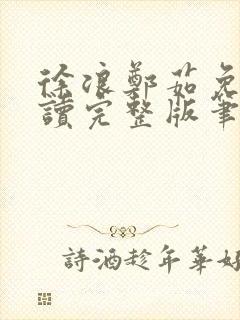 徐浪鄭茹免
讀完整版筆
詩酒趁年華好